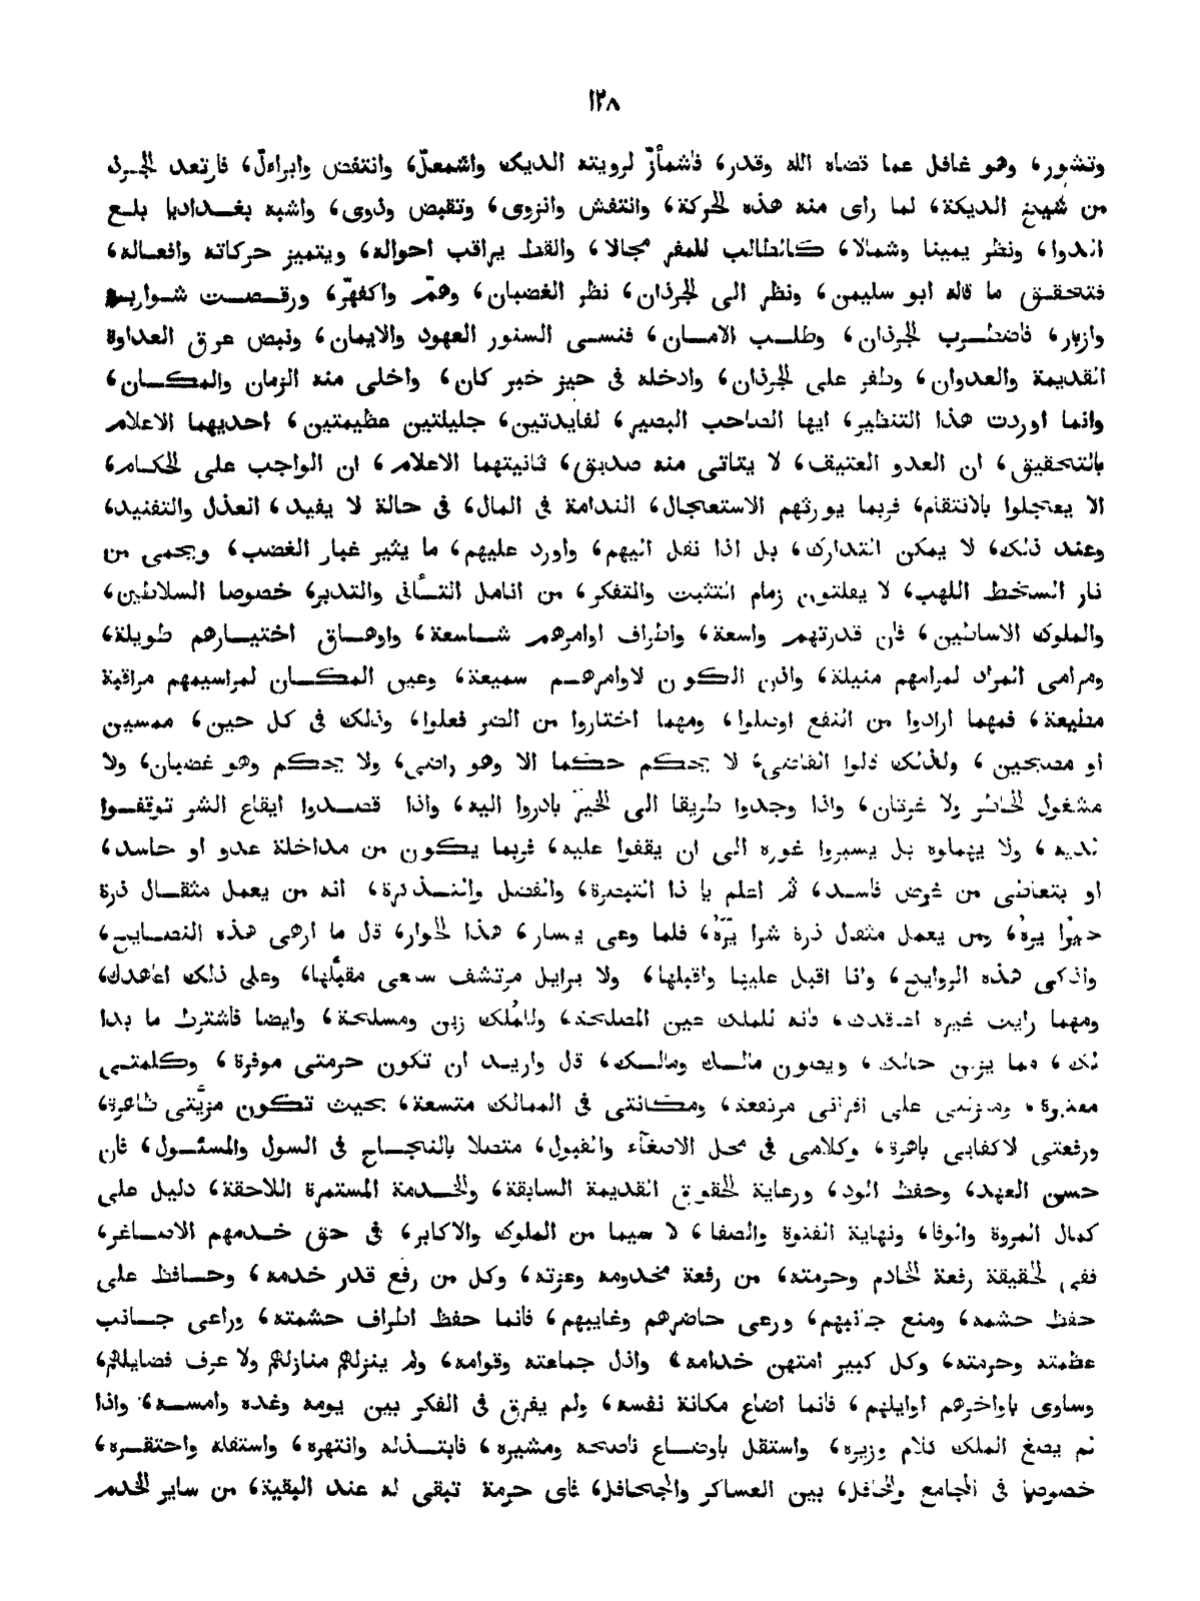 ١٢٨
وتشور، وهو غافل عما قضاه الله وقدر، فاشمأزّ لرويته الديك واشمعلّ، وانتفض وابراءلّ، فارتعد الجرذ
من شيخ الديكة، لما راى منه هذه الحركة، وانتفش وانزوى، وتقبض وذوى، واشبه بغداديا بلع
الدوا، ونظر يمينا وشمالا، كالطالب للمفر مجالا، والقط يراقب احواله، ويتميز حركاته وافعاله،
فتحقق ما قاله ابو سليمن، ونظر الى الجرذان، نظر الغضبان، وهمّر واكفهرّ، ورقصت شواربه
وازبار، فاضطرب الجرذان، وطلب الامان، فنسى السنور العهود والايمان، ونبض عرق العداوة
القديمة والعدوان، وطفر على الجرذان، وادخله فى حيز خبر كان، واخلى منه الزمان والمكان،
وانما اوردت هذا التنظير، ايها الصاحب البصير، لفايدتين، جليلتين عظيمتين، احديهما الاعلام
بالتحقيق، ان العدو العتيق، لا يتاتى منه صديق، ثانيتهما الاعلام، ان الواجب على الحكام،
الا يعجلوا بالانتقام، فربما يورثهم الاستعجال، الندامة فى المال، فى حالة لا يفيد، العذل والتفنيد،
وعند ذلك، لا يمكن التدارك، بل اذا نقل اليهم، واورد عليهم، ما يثير غبار الغضب، ويحمى من
نار السخط اللهب، لا يفلتون زمام التثبت والتفكر، من انامل التأنى والتدبر، خصوصا السلاطين،
والملوك الاساطين، فان قدرتهم واسعة، واطراف اوامرهم شاسعة، واوهاق اختيارهم طويلة،
ومرامى المراد لمرامهم منيلة، واذن الكون لاوامرهم سميعة، وعين المكان لمراسيمهم مراقبة
مطيعة، فمهما ارادوا من النفع اوصلوا، ومهما اختاروا من الضر فعلوا، وذلك فى كل حين، ممسين
او مصبحين، ولذلك قالوا القاضى، لا يحكم حكما الا وهو راضى، ولا يحكم وهو غضبان، ولا
مشغول الخاطر ولا غرثان، واذا وجدوا طريقا الى الخير بادروا اليه، واذا قصدوا ايقاع الشر توقفوا
لديه، ولا يهملوه بل يسبروا غوره الى ان يقفوا عليه، فربما يكون من مداخلة عدو او حاسد،
او بتعاطى من غرض فاسد، ثم اعلم يا ذا التبصرة، والفضل والتذكرة، انه من يعمل مثقال ذرة
خيرًا يره، ومن يعمل مثقال ذرة شرا يرّه، فلما وعى يسار، هذا الحوار، قال ما ارهى هذه النصايح،
واذكى هذه الروايح، وانا اقبل عليها واقبلها، ولا يرايل مرتشف سمعى مقبّلها، وعلى ذلك اعاهدك،
ومهما رايت غيره اعاقدك، فانه للملك عين المصلحة، وللملك زين ومسلحة، وايضا فاشترط ما بدا
لك، مما يزين حالك، ويصون مالك ومالك، قال واريد ان تكون حرمتى موفرة، وكلمتى
معتبرة، ومنزلتى على اقرانى مرتفعة، ومكانتى فى الممالك متسعة، بحيث تكون مزيّتى ظاهرة،
ورفعتى لاكفايى باهرة، وكلامى فى محل الاصغآء والقبول، متصلا بالنجاح فى السول والمسئول، فان
حسن العهد، وحفظ الود، ورعاية الحقوق القديمة السابقة، والخدمة المستمرة اللاحقة، دليل على
كمال المروة والوفا، ونهاية الفتوة والصفا، لا سيما من الملوك والاكابر، فى حق خدمهم الاصاغر،
ففى الحقيقة رفعة الخادم وحرمته، من رفعة مخدومه وعزته، وكل من رفع قدر خدمه، وحافظ على
حفظ حشمه، ومنع جانبهم، ورعى حاضرهم وغايبهم، فانما حفظ اطراف حشمته، وراعى جانب
عظمته وحرمته، وكل كبير امتهن خدامه، واذل جماعته وقوامه، ولم ينزلهم منازلهم ولا عرف فضايلهم،
وساوى باواخرهم اوايلهم، فانما اضاع مكانة نفسه، ولم يفرق فى الفكر بين يومه وغده وامسه، واذا
لم يصغ الملك كلام وزيره، واستقل باوضاع ناصحه ومشيره، فابتذله وانتهره، واستفله واحتقره،
خصوصا فى المجامع والمحافل، بين العساكر والجحافل، فاى حرمة تبقى له عند البقية، من ساير الخدم